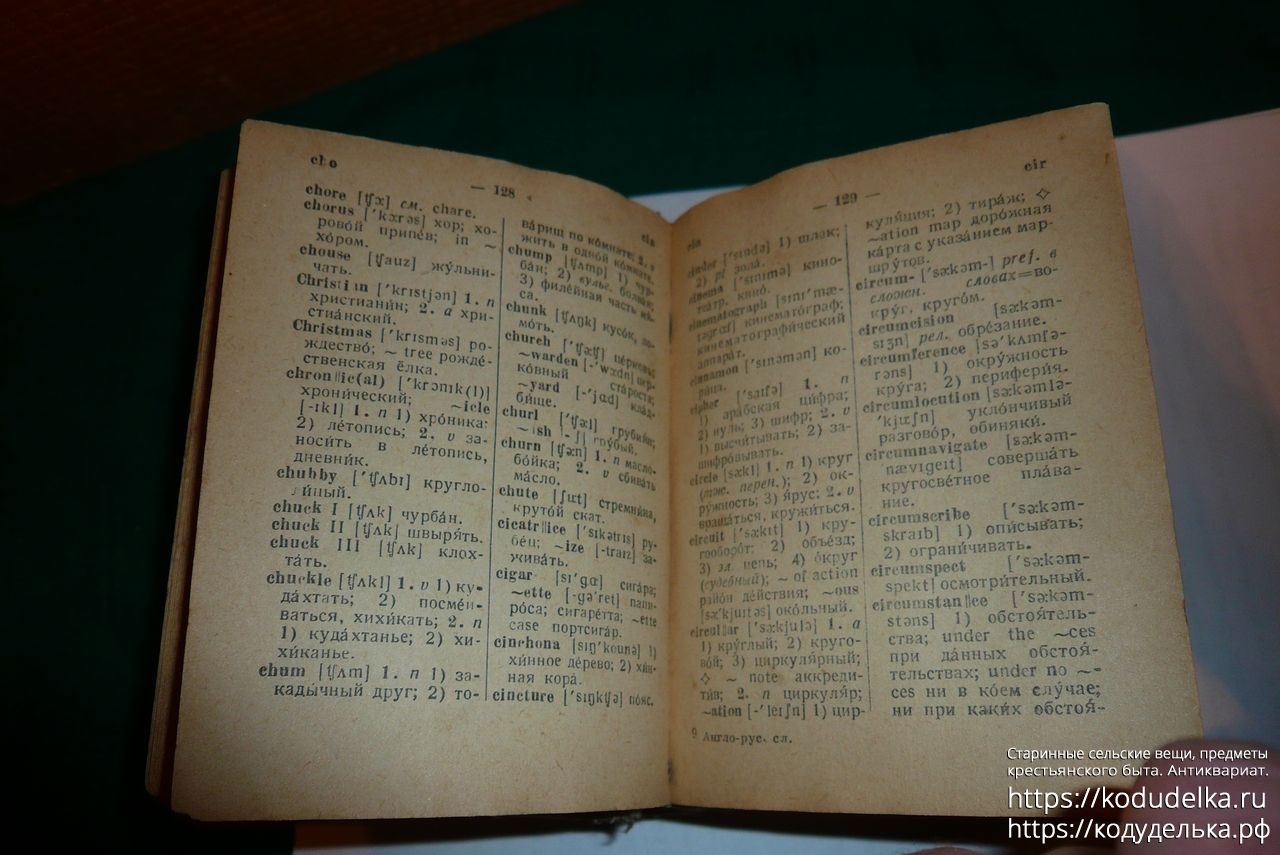 cho
— 128
chore [ʧɔ:] см. chare.
chorus ['kɔ:rəs] хор; хо-
ро́вой припе́в; in ~
хо́ром.
chouse [ʧauz] жу́льни-
чать.
Christian ['krɪstjən] 1. n
христиани́н; 2. a хри-
стиа́нский.
Christmas ['krɪsməs] ро-
ждество́; ~ tree рожде́-
ственская ёлка.
chron‖ic(al) ['krɔnɪk(l)]
хрони́ческий; ~icle
[-ɪkl] 1. n 1) хро́ника;
2) ле́топись; 2. v за-
носи́ть в ле́топись,
дневни́к.
chubby ['ʧʌbɪ] кругло-
ли́цый.
chuck I [ʧʌk] чурба́н.
chuck II [ʧʌk] швыря́ть.
chuck III [ʧʌk] клох-
та́ть.
chuckle [ʧʌkl] 1. v 1) ку-
да́хтать; 2) посме́и-
ваться, хихи́кать; 2. n
1) куда́хтанье; 2) хи-
хи́канье.
chum [ʧʌm] 1. n 1) за-
кады́чный друг; 2) то-
cin
ва́рищ по ко́мнате; 2. v
жить в одно́й ко́мнате.
chump [ʧʌmp] 1) чур-
ба́н; 2) вульг. болва́н;
3) филе́йная часть мя́-
са.
chunk [ʧʌŋk] кусо́к, ло-
мо́ть.
church [ʧə:ʧ] це́рковь;
~warden [-'wɔ:dn] цер-
ко́вный ста́роста;
~yard [-'jɑ:d] клад-
би́ще.
churl [ʧə:l] грубия́н;
~ish [-ɪʃ] гру́бый.
churn [ʧə:n] 1. n масло-
бо́йка; 2. v сбива́ть
ма́сло.
chute [ʃu:t] стремни́на,
круто́й скат.
cicatr‖ice ['sɪkətrɪs] ру-
бе́ц; ~ize [-traɪz] за-
жива́ть.
cigar [sɪ'gɑ:] сига́ра;
~ette [-gə'ret] папи-
ро́са; сигаре́тта; ~ette
case портсига́р.
cinchona [sɪŋ'kounə] 1)
хи́нное де́рево; 2) хи́н-
ная кора́.
cincture ['sɪŋkʧə] по́яс.
— 129 —
cin
cinder ['sɪndə] 1) шлак;
2) pl зола́.
cinema ['sɪnɪmə] кино-
теа́тр, кино́.
cinematograph [sɪnɪ'mæ-
təgrɑ:f] кинемато́граф;
кинематографи́ческий
аппара́т.
cinnamon ['sɪnəmən] ко-
ри́ца.
cipher ['saɪfə] 1. n
1) ара́бская ци́фра;
2) нуль; 3) шифр; 2. v
1) высчи́тывать; 2) за-
шифро́вывать.
circle [sə:kl] 1. n 1) круг
(тж. перен.); 2) ок-
ру́жность; 3) я́рус; 2. v
враща́ться, кружи́ться.
circuit ['sə:kɪt] 1) кру-
гооборо́т; 2) объе́зд;
3) эл. цепь; 4) о́круг
(суде́бный); ~ of action
райо́н де́йствия; ~ous
[sə'kju:ɪtəs] око́льный.
circul‖ar ['sə:kjulə] 1. a
1) кру́глый; 2) круго-
во́й; 3) циркуля́рный;
◇ ~ note аккреди-
ти́в; 2. n циркуля́р;
~ation [-'leɪʃn] 1) цир-
9 Англо-рус. сл.
cir
куля́ция; 2) тира́ж; ◇
~ation map доро́жная
ка́рта с указа́нием мар-
шру́тов.
circum- ['sə:kəm-] pref. в
сложн. словах=во-
кру́г, круго́м.
circumcision [sə:kəm-
sɪʒn] рел. обре́зание.
circumference [sə'kʌmfə-
rəns] 1) окру́жность
кру́га; 2) перифери́я.
circumlocution [sə:kəmlə-
'kju:ʃn] укло́нчивый
разгово́р, обиняки́.
circumnavigate [sə:kəm-
'nævɪgeɪt] соверша́ть
кругосве́тное пла́ва-
ние.
circumscribe ['sə:kəm-
skraɪb] 1) опи́сывать;
2) ограни́чивать.
circumspect ['sə:kəm-
spekt] осмотри́тельный.
circumstan‖ce ['sə:kəm-
stəns] 1) обстоя́тель-
ства; under the ~ces
при да́нных обстоя́-
тельствах; under no ~-
ces ни в ко́ем слу́чае;
ни при каки́х обстоя́-
Старинные сельские вещи, предметы
крестьянского быта. Антиквариат.
https://kodudelka.ru
https://кодуделька.рф